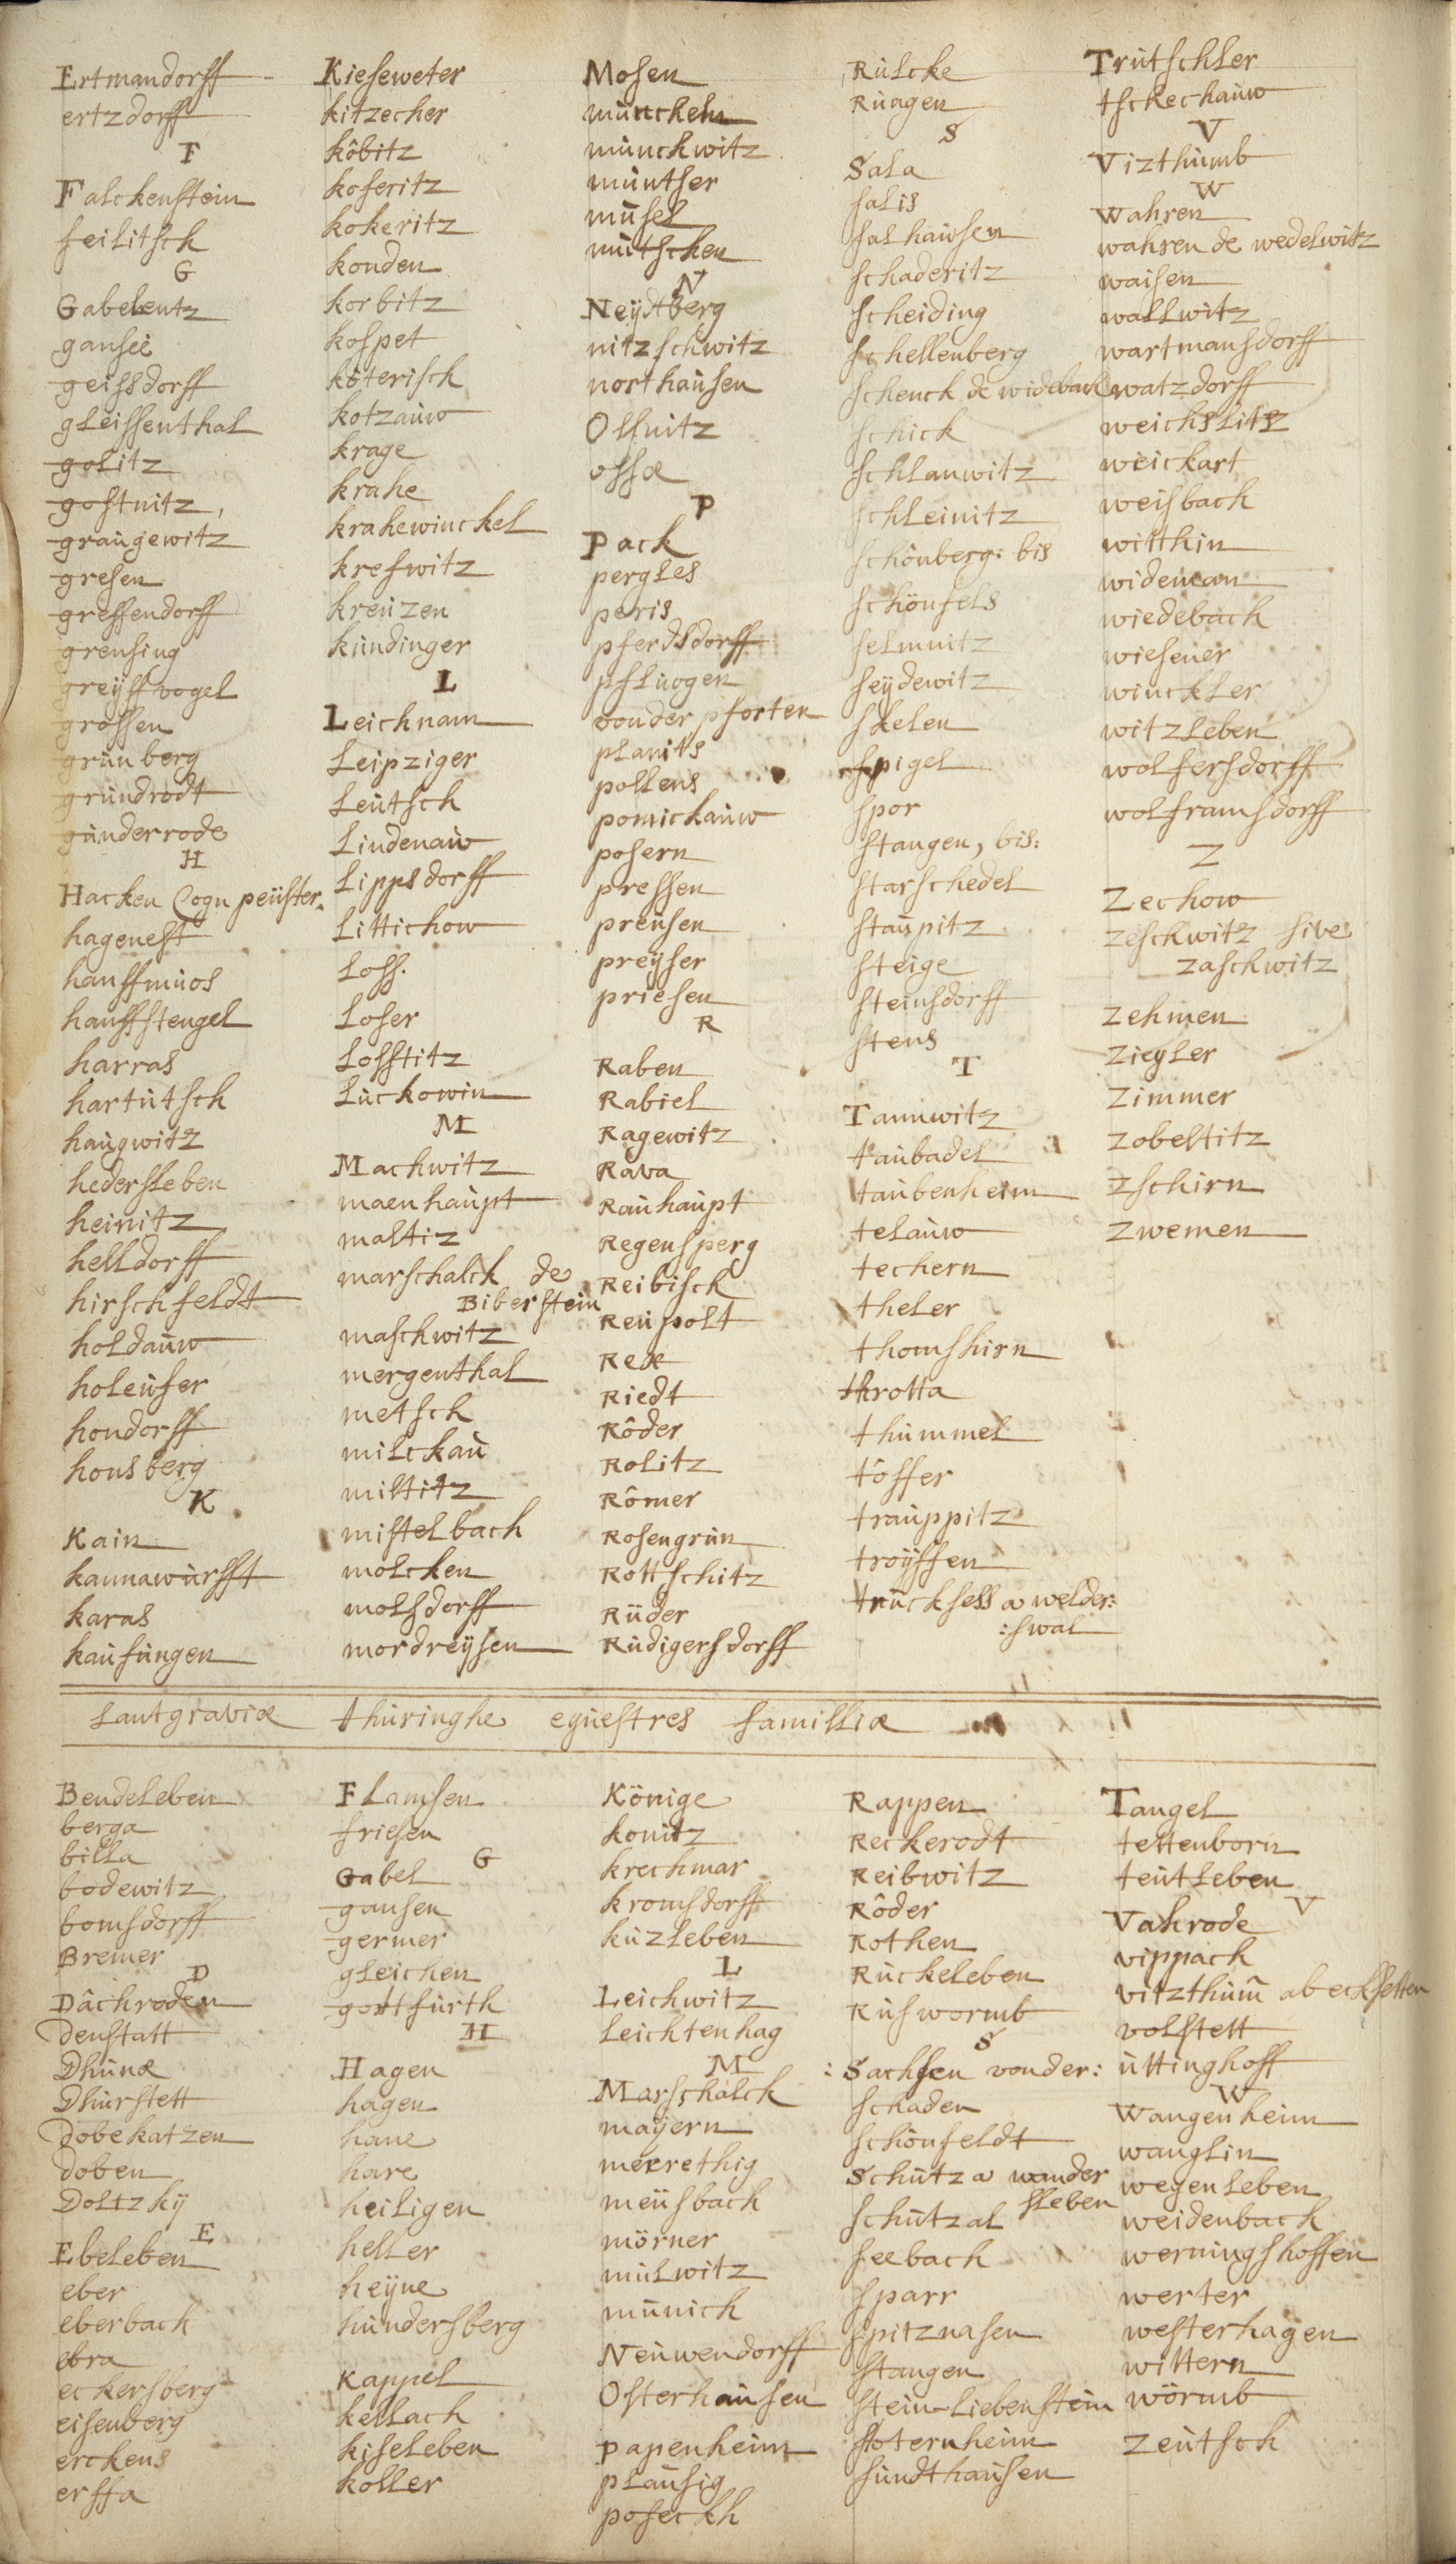 Ertmandorff
ertzdorff
F
Falckenstein
feilitsch
G
Gabelentz
gansei
geissdorff
gleissenthal
golitz
gostnitz,
graugewitz
gresen
greffendorff
grensing
greÿffvogel
grossen
grünberg
gründrodt
günderrode
H
Hacken Cogn peüster.
hagenest
hanffmüos
hanffstengel
harras
hartütsch
haugwitz
hedersleben
heinitz
helldorff
hirschfeldt
holdauw
holeüser
hondorff
honsberg
K
Kain
kannawürfft
karas
kaufüngen
Kieseweter
kitzecher
köbitz
koseritz
kokeritz
konden
korbitz
kospet
köterisch
kotzauw
krage
krahe
krahewinckel
kreswitz
kreüzen
kündinger
L
Leichnam
Leipziger
Leütsch
Lindenaw
Lippsdorff
Littichow
Loss.
Loser
Losstitz
Lückowin
M
Machwitz
maenhaupt
maltiz
marschalck de
Biberstein
maschwitz
mergenthal
metsch
milckau
miltitz
mistelbach
molcken
molsdorff
mordreÿsen
Mosen
müncheln
münckwitz
müntser
müsel
mütschen
N
Neÿdtberg
nitzschwitz
northausen
Olsnitz
ossæ
P
Pack
pergles
peris
pferdsdorff
pflüogen
vonder pforten
planits
pollens
pomickauw
posern
pressen
preüsen
preÿser
priesen
R
Raben
Rabiel
Ragewitz
Rava
Rauhaupt
Regensperg
Reibisch
Reüpolt
Rex
Riedt
Röder
Rolitz
Römer
Rosengrün
Rottschitz
Rüder
Rüdigersdorff
Rülcke
Rüagen
S
Sala
salis
salhausen
schaderitz
scheiding
schellenberg
schenck de widebach
schick
schlanwitz
schleinitz
schönberg: bis
schönfels
selmnitz
seÿdewitz
skelen
spigel
spor
stangen, bis:
starschedel
staupitz
steige
steinsdorff
stens
T
Tannwitz
taubadel
taubenheim
telauw
techern
theler
thomshirn
throtta
thümmel
töffer
trauppitz
troÿffen
trücksess a welder:
:swal
Trütschler
tschechauw
V
Vizthumb
W
Wahren
wahren de wedelwitz
waisen
wallwitz
wartmansdorff
watzdorff
weichslitz
weickart
weisbach
witthin
wideman
wiedebach
wiesener
winckler
witzleben
wolfersdorff
wolframsdorff
Z
Zechow
zeschwitz sive
zaschwitz
Zehmen
ziegler
Zimmer
zobeltitz
zschirn
zwemen
Lantgraviæ thüringhe equestres familliæ
Bendeleben
berga
billa
bodewitz
bomsdorff
Bremer
D
Dächroden
denstatt
Dhünæ
Dhürstett
Dobekatzen
doben
Doltzkÿ
E
Ebeleben
eber
eberbach
ebra
eckersberg
eisenberg
erckens
erffa
Flamsen
friesen
G
Gabel
gansen
germer
gleichen
gottfürth
H
Hagen
hagen
hane
hare
heiligen
heller
heÿne
hündersberg
Kappel
kellach
kiseleben
koller
Könige
konitz
krechmar
kromsdorff
küzleben
L
Leichwitz
Leichtenhag
M
Marschalck
maÿern
meerrethig
meüsbach
mörner
mülwitz
münich
Neüwendorff
Osterhausen
Papenheim
plausig
poseckh
Rappen
Reckerodt
Reibwitz
Röder
Rothen
Rückeleben
Rüswormb
S
:Sachsen vonder:
schaden
schönfeldt
Schütz a wander
sleben
schützal
seebach
sparr
spitznasen
stangen
stein-Liebenstein
stoternheim
sündthausen
Tangel
tettenborn
teütleben
V
Vahrode
vippach
vitzthum ab eckstetten
volstett
üttinghoff
W
Wangenheim
wanglin
wegenleben
weidenbach
werningshoffen
werter
westerhagen
wittern
wörmb
zeütsch